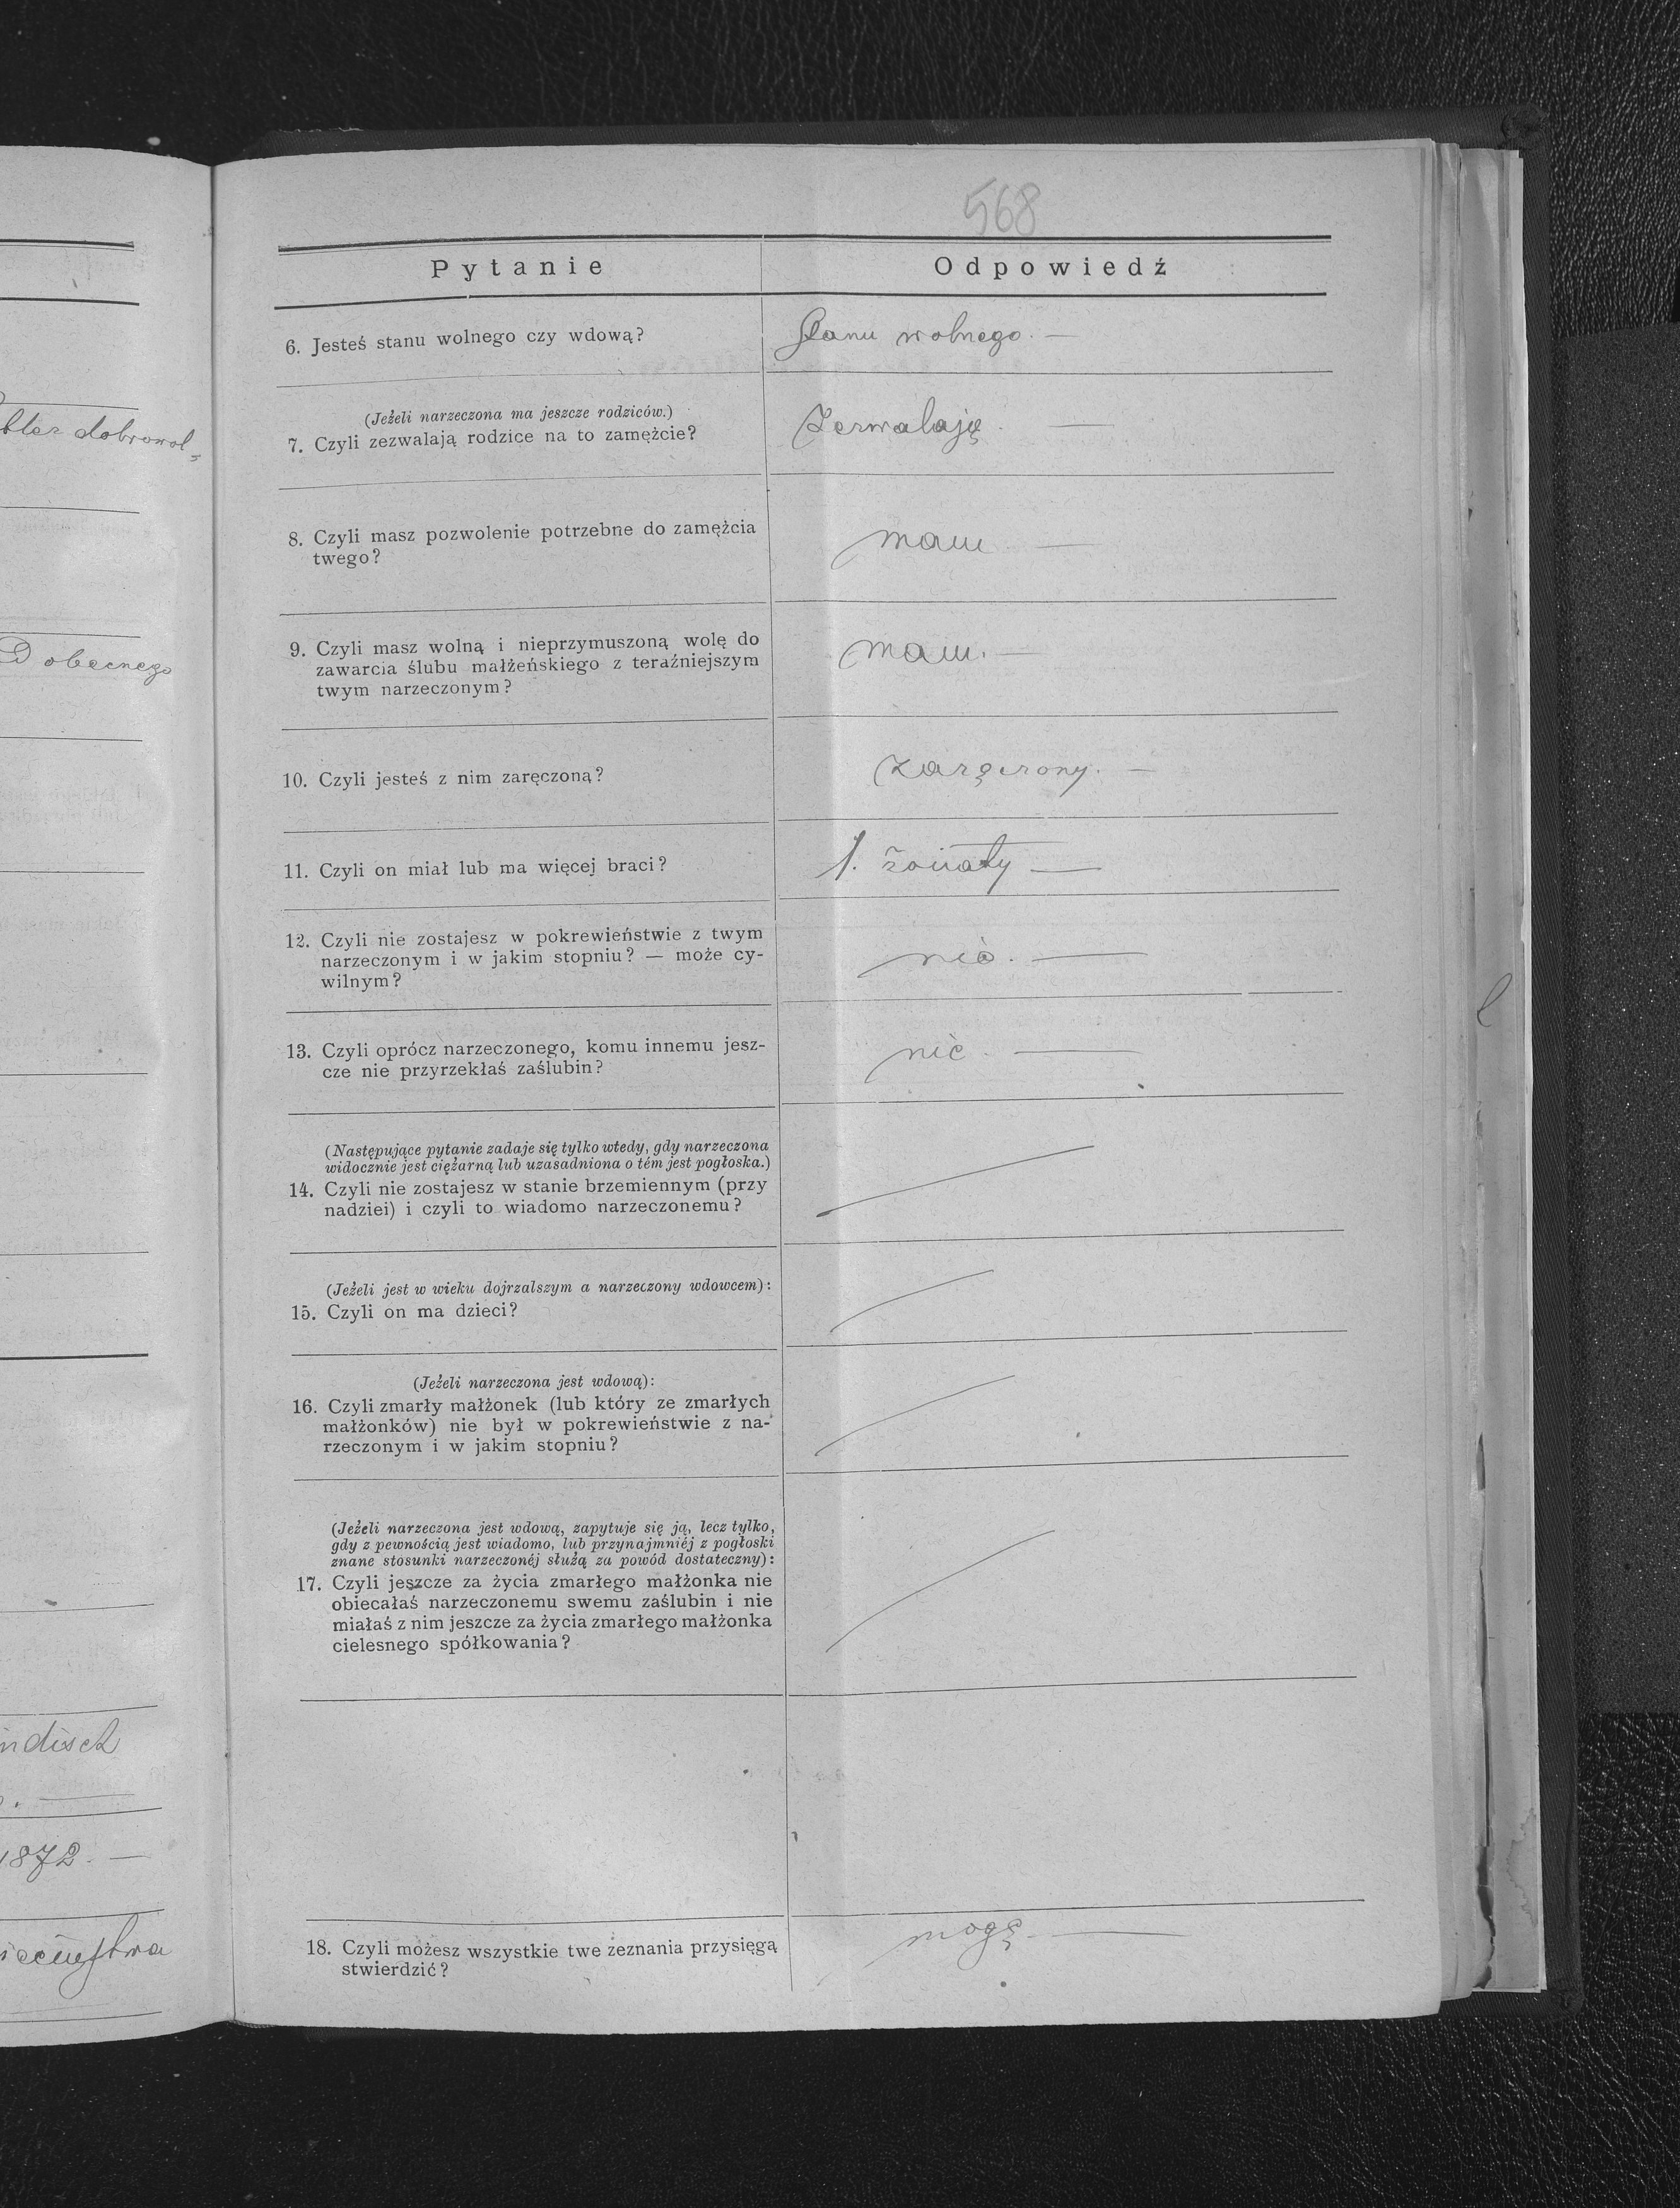 568
Pytanie
Odpowiedź
6. Jesteś stanu wolnego czy wdową?
Stanu wolnego. —
(Jeżeli narzeczona ma jeszcze rodziców.)
7. Czyli zezwalają rodzice na to zamężcie?
Zezwalają. —
8. Czyli masz pozwolenie potrzebne do zamężcia
twego?
mam —
9. Czyli masz wolną i nieprzymuszoną wolę do
zawarcia ślubu małżeńskiego z teraźniejszym
twym narzeczonym?
mam. —
10. Czyli jesteś z nim zaręczoną?
zaręczony. —
11. Czyli on miał lub ma więcej braci?
1. żonaty —
12. Czyli nie zostajesz w pokrewieństwie z twym
narzeczonym i w jakim stopniu? — może cy-
wilnym?
nie. —
13. Czyli oprócz narzeczonego, komu innemu jesz-
cze nie przyrzekłaś zaślubin?
nie. —
(Następujące pytanie zadaje się tylko wtedy, gdy narzeczona
widocznie jest ciężarną lub uzasadniona o tém jest pogłoska.)
14. Czyli nie zostajesz w stanie brzemiennym (przy
nadziei) i czyli to wiadomo narzeczonemu?
(Jeżeli jest w wieku dojrzalszym a narzeczony wdowcem):
15. Czyli on ma dzieci?
(Jeżeli narzeczona jest wdową):
16. Czyli zmarły małżonek (lub który ze zmarłych
małżonków) nie był w pokrewieństwie z na-
rzeczonym i w jakim stopniu?
(Jeżeli narzeczona jest wdową, zapytuje się ją, lecz tylko,
gdy z pewnością jest wiadomo, lub przynajmniéj z pogłoski
znane stosunki narzeczonéj służą za powód dostateczny):
17. Czyli jeszcze za życia zmarłego małżonka nie
obiecałaś narzeczonemu swemu zaślubin i nie
miałaś z nim jeszcze za życia zmarłego małżonka
cielesnego spółkowania?
18. Czyli możesz wszystkie twe zeznania przysięgą
stwierdzić?
mogę. —
dobrowol=
obecnego
1872. —